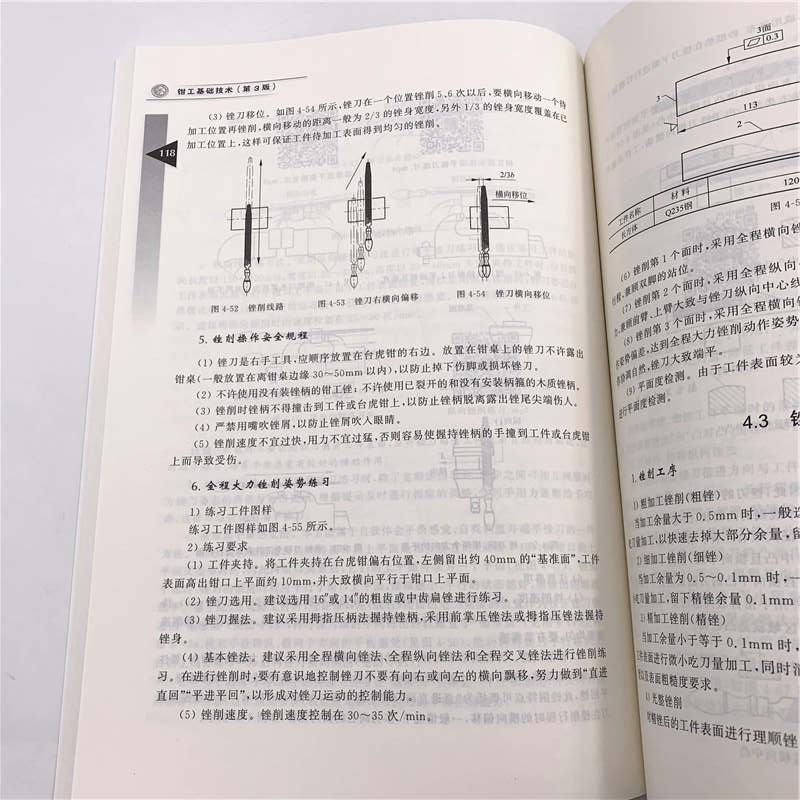 钳工基础技术(第3版)
118
(3) 锉刀移位。如图 4-54 所示,锉刀在一个位置锉削5、6 次以后,要横向移动一个待
加工位置再锉削,横向移动的距离一般为 2/3 的锉身宽度,另外 1/3 的锉身宽度覆盖在已
加工位置上,这样可保证工件待加工表面得到均匀的锉削。
2/3b
横向移位
图 4-52 锉削线路
图 4-53 锉刀右横向偏移
图 4-54 锉刀横向移位
5. 锉削操作安全规程
(1) 锉刀是右手工具,应顺序放置在台虎钳的右边。放置在钳桌上的锉刀不许露出
钳桌(一般放置在离钳桌边缘 30~50mm 以内),以防止掉下伤脚或损坏锉刀。
(2) 不许使用没有装锉柄的钳工锉;不许使用已裂开的和没有安装柄箍的木质锉柄。
(3) 锉削时锉柄不得撞击到工件或台虎钳上,以防止锉柄脱离露出锉尾尖端伤人。
(4) 严禁用嘴吹锉屑,以防止锉屑吹入眼睛。
(5) 锉削速度不宜过快,用力不宜过猛,否则容易使握持锉柄的手撞到工件或台虎钳
上而导致受伤。
6. 全程大力锉削姿势练习
1) 练习工件图样
练习工件图样如图 4-55 所示。
2) 练习要求
(1) 工件夹持。将工件夹持在台虎钳偏右位置,左侧留出约 40mm 的“基准面”,工件
表面高出钳口上平面约 10mm,并大致横向平行于钳口上平面。
(2) 锉刀选用。建议选用 16″或 14″的粗齿或中齿扁锉进行练习。
(3) 锉刀握法。建议采用拇指压柄法握持锉柄,采用前掌压锉法或拇指压锉法握持
锉身。
(4) 基本锉法。建议采用全程横向锉法、全程纵向锉法和全程交叉锉法进行锉削练
习。在进行锉削时,要有意识地控制锉刀不要有向右或向左的横向飘移,努力做到“直进
直回”“平进平回”,以形成对锉刀运动的控制能力。
(5) 锉削速度。锉削速度控制在 30~35 次/min。
3面
0.3
3
113
2
120
工件名称 材料
长方体 Q235钢
图 4-5
(6) 锉削第 1 个面时,采用全程横向锉
兼顾双脚的站位。
(7) 锉削第 2 个面时,采用全程纵向
兼顾前臂、上臂大致与锉刀纵向中心线
(8) 锉削第 3 个面时,采用全程横向
姿势偏差,达到全程大力锉削动作姿势
协调自然,锉刀大致端平。
(9) 平面度检测。由于工件表面较
进行平面度检测。
4.3 锉
1. 锉削工序
1) 粗加工锉削(粗锉)
当加工余量大于 0.5mm 时,一般选
吃刀量加工,以快速去掉大部分余量,留
2) 细加工锉削(细锉)
当加工余量为 0.5~0.1mm 时,一
吃刀量加工,留下精锉余量 0.1mm
3) 精加工锉削(精锉)
当加工余量小于等于 0.1mm 时,
工件表面进行微小吃刀量加工,同时消
以及表面粗糙度要求。
4) 光整锉削
对精锉后的工件表面进行理顺锉